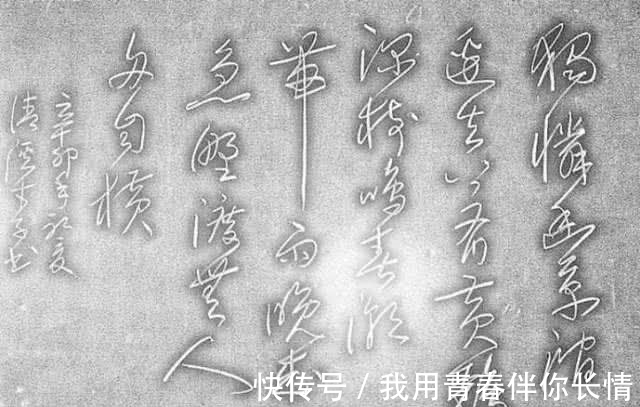 獨憐幽草澗
邊生上有黄鸝
深樹鳴春潮
帶雨晚來
急野渡無人
舟自横
辛卯年初夏
快传号 / 我用青春伴你长情